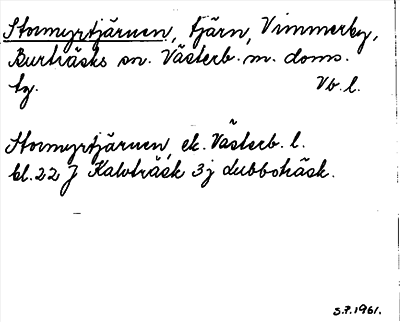 Stormyrtjärnen, tjärn, Vimmerby,
Burträsks sn. Västerb. m. doms.
tg. Vb. l.
Stormyrtjärnen, ek. Västerb. l.
bl. 22 J Kalvträsk 3j dubbohäsk.
S.F. 1961.